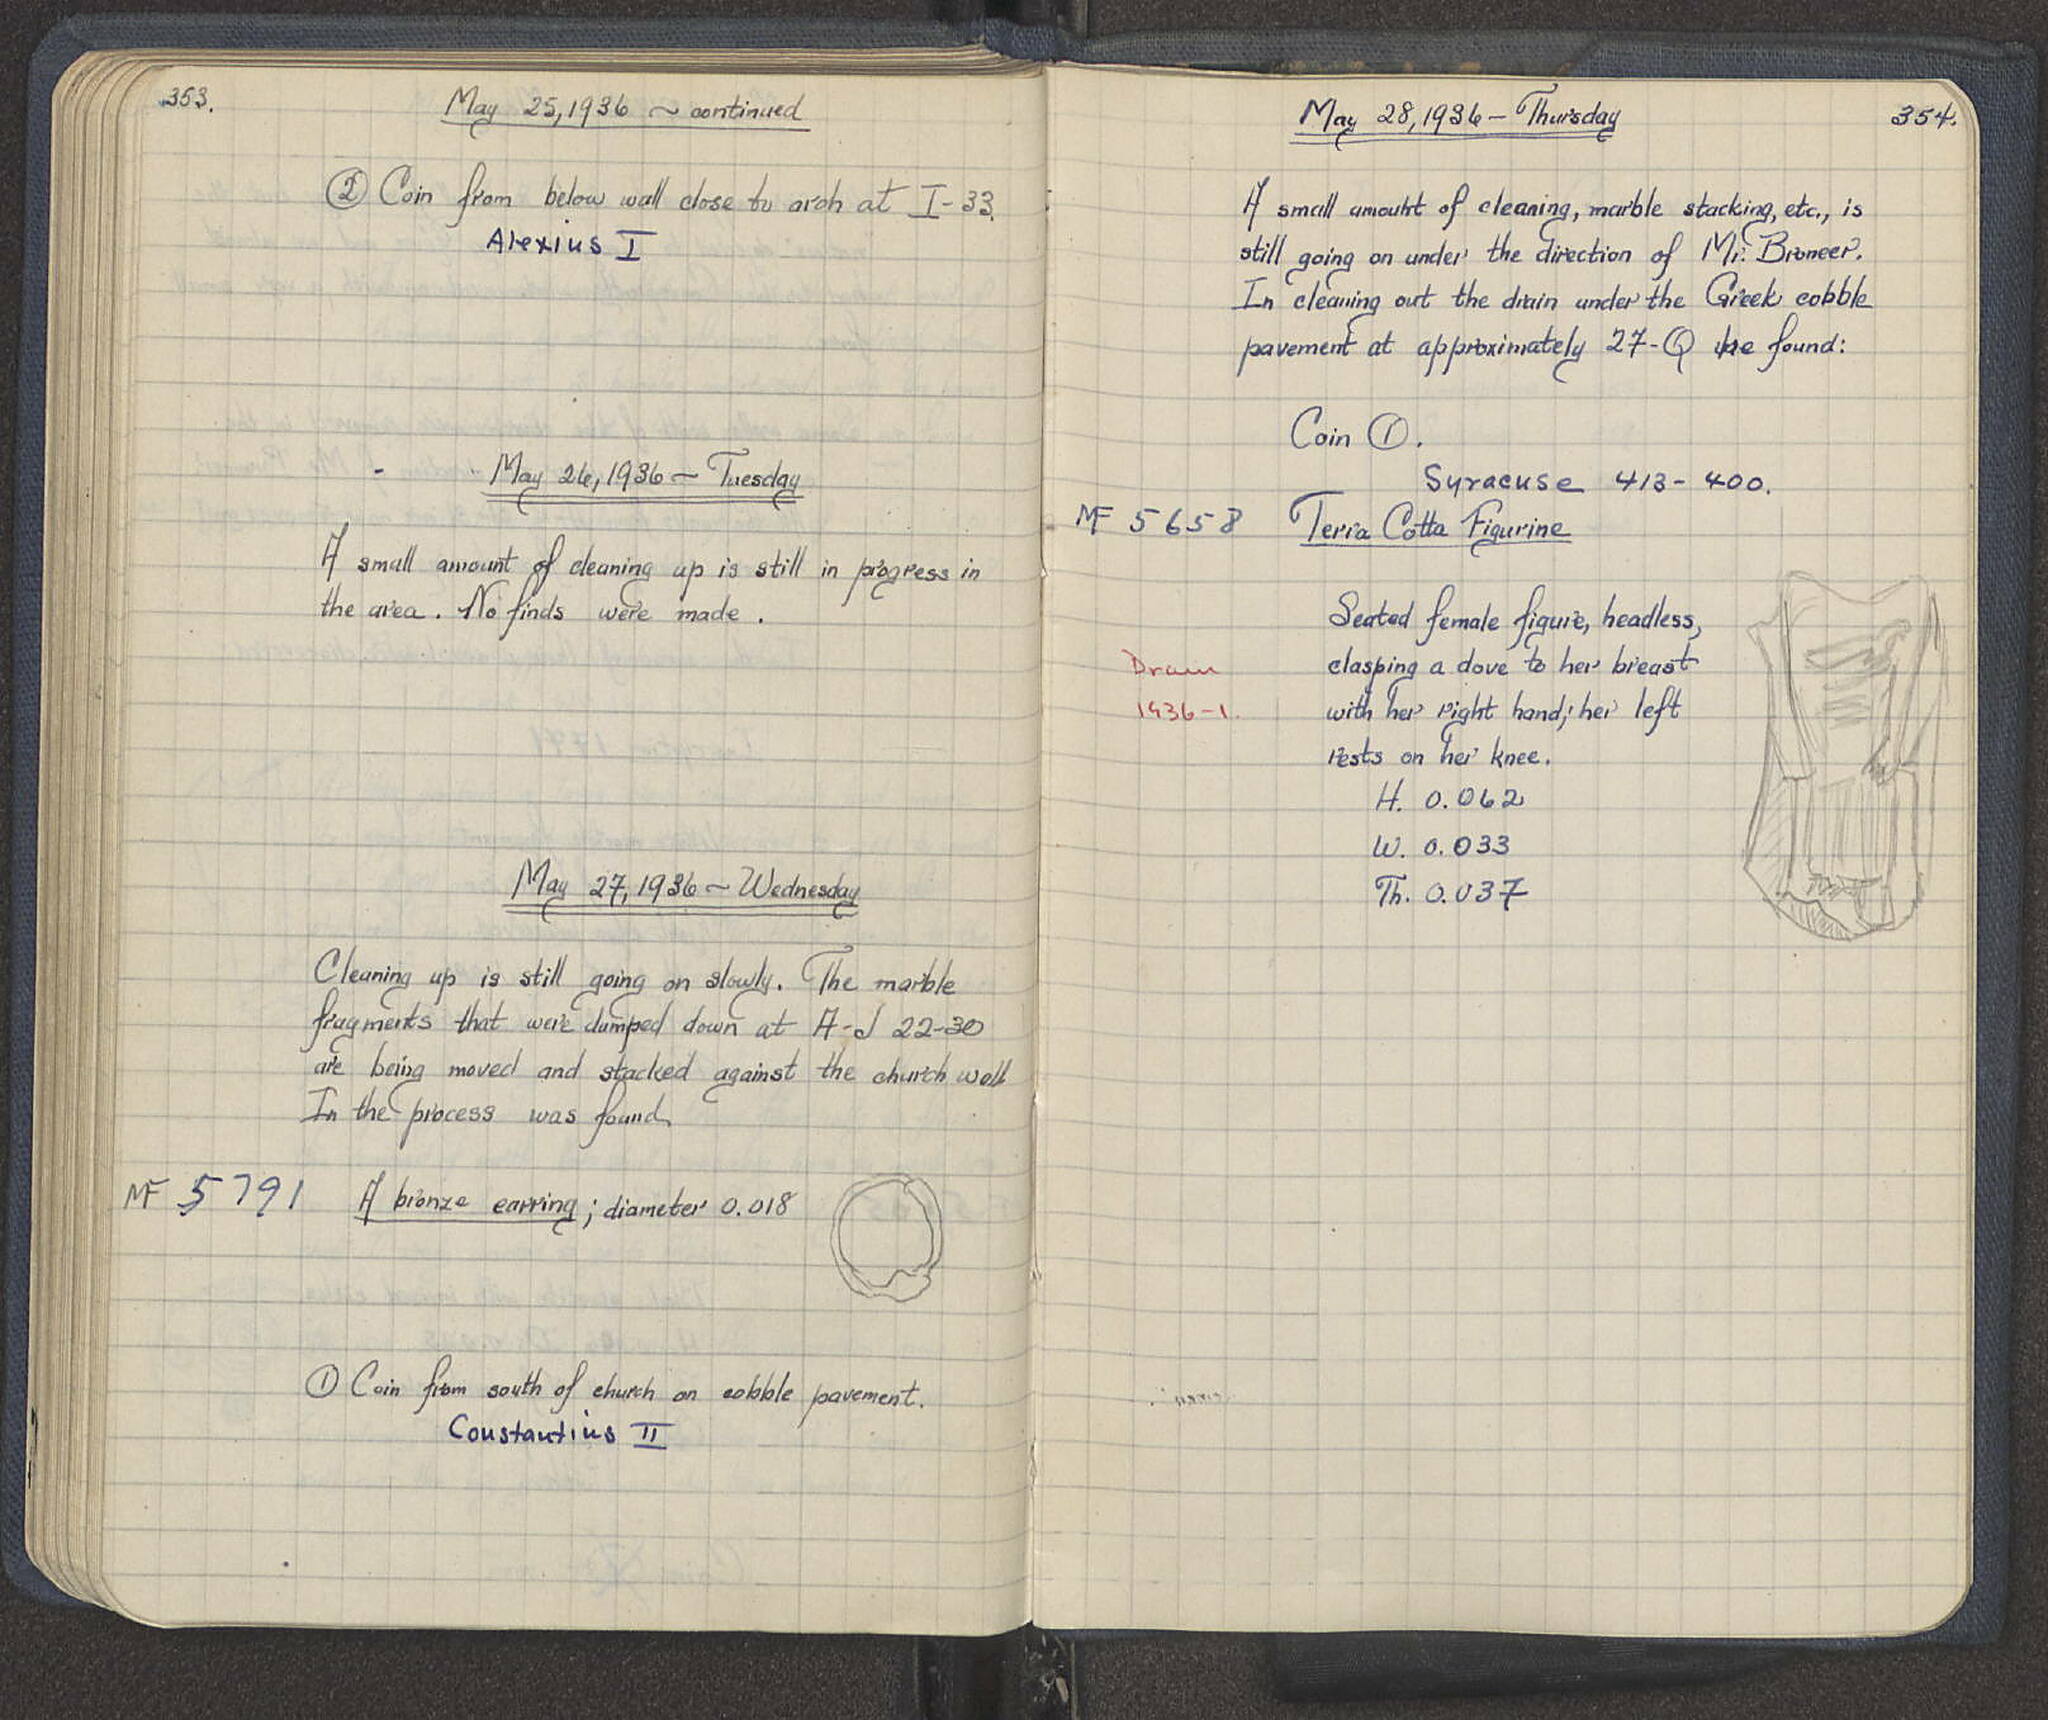 353.
May 25, 1936 ~ continued
② Coin from below wall close to arch at I-33.
Alexius I
May 26, 1936 ~ Tuesday
A small amount of cleaning up is still in progress in
the area. No finds were made.
May 27, 1936 ~ Wednesday
Cleaning up is still going on slowly. The marble
fragments that were dumped down at A-J 22-30
are being moved and stacked against the church wall
In the process was found
MF 5791 A bronze earring; diameter 0.018
① Coin from south of church on cobble pavement.
Constantius II
May 28, 1936 - Thursday
354.
A small amount of cleaning, marble stacking, etc., is
still going on under the direction of Mr. Broneer.
In cleaning out the drain under the Greek cobble
pavement at approximately 27-Q we found:
Coin ①.
Syracuse 413-400.
MF 5658 Terra Cotta Figurine
Seated female figure, headless,
clasping a dove to her breast
with her right hand; her left
rests on her knee.
Drain
1936-1.
H. 0.062
W. 0.033
Th. 0.037